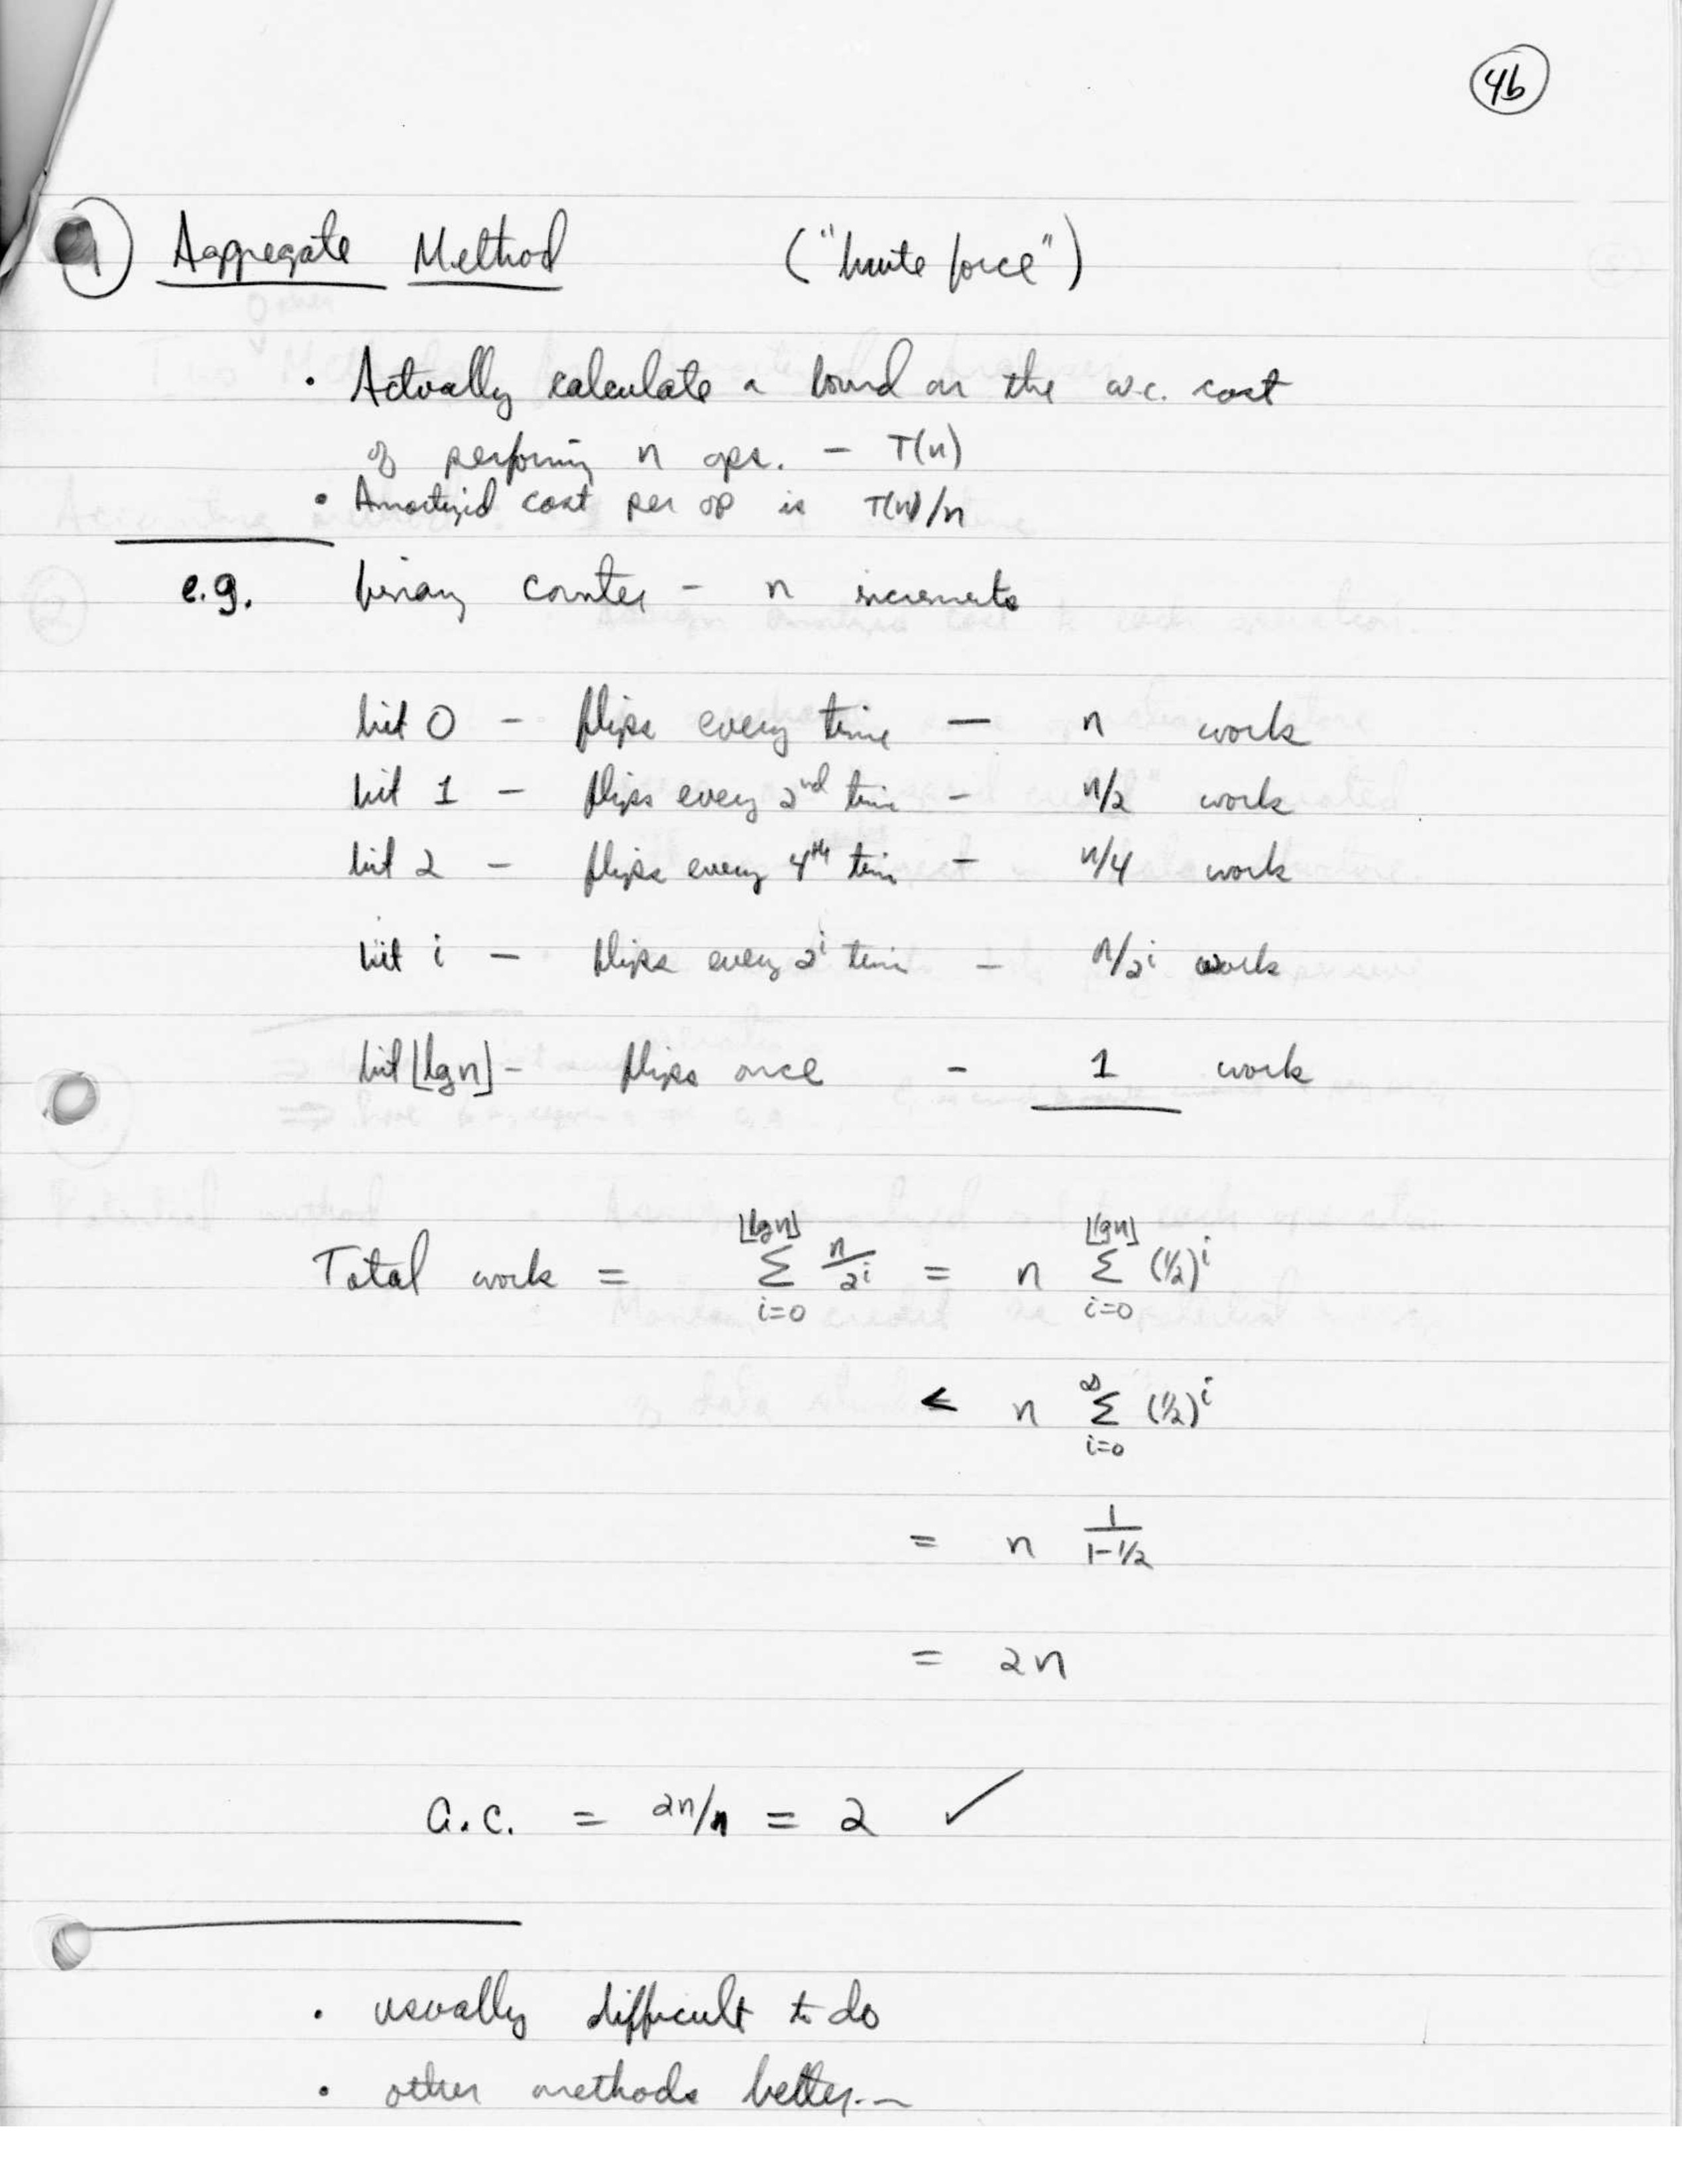 4b
1 Aggregate Method ("brute force")
· Actually calculate a bound on the w.c. cost
of performing n ops. – T(n)
· Amortized cost per op is T(n)/n
e.g. binary counter – n increments
bit 0 – flips every time – n work
bit 1 – flips every 2nd time – n/2 work
bit 2 – flips every 4th time – n/4 work
bit i – flips every 2^i time – n/2^i work
bit ⌊lg n⌋ – flips once – 1 work
Total work = ⌊lg n⌋ Σ i=0 n/2^i = n ⌊lg n⌋ Σ i=0 (1/2)^i
< n ∞ Σ i=0 (1/2)^i
= n 1/(1-1/2)
= 2n
a.c. = 2n/n = 2 ✓
· usually difficult to do
· other methods better...